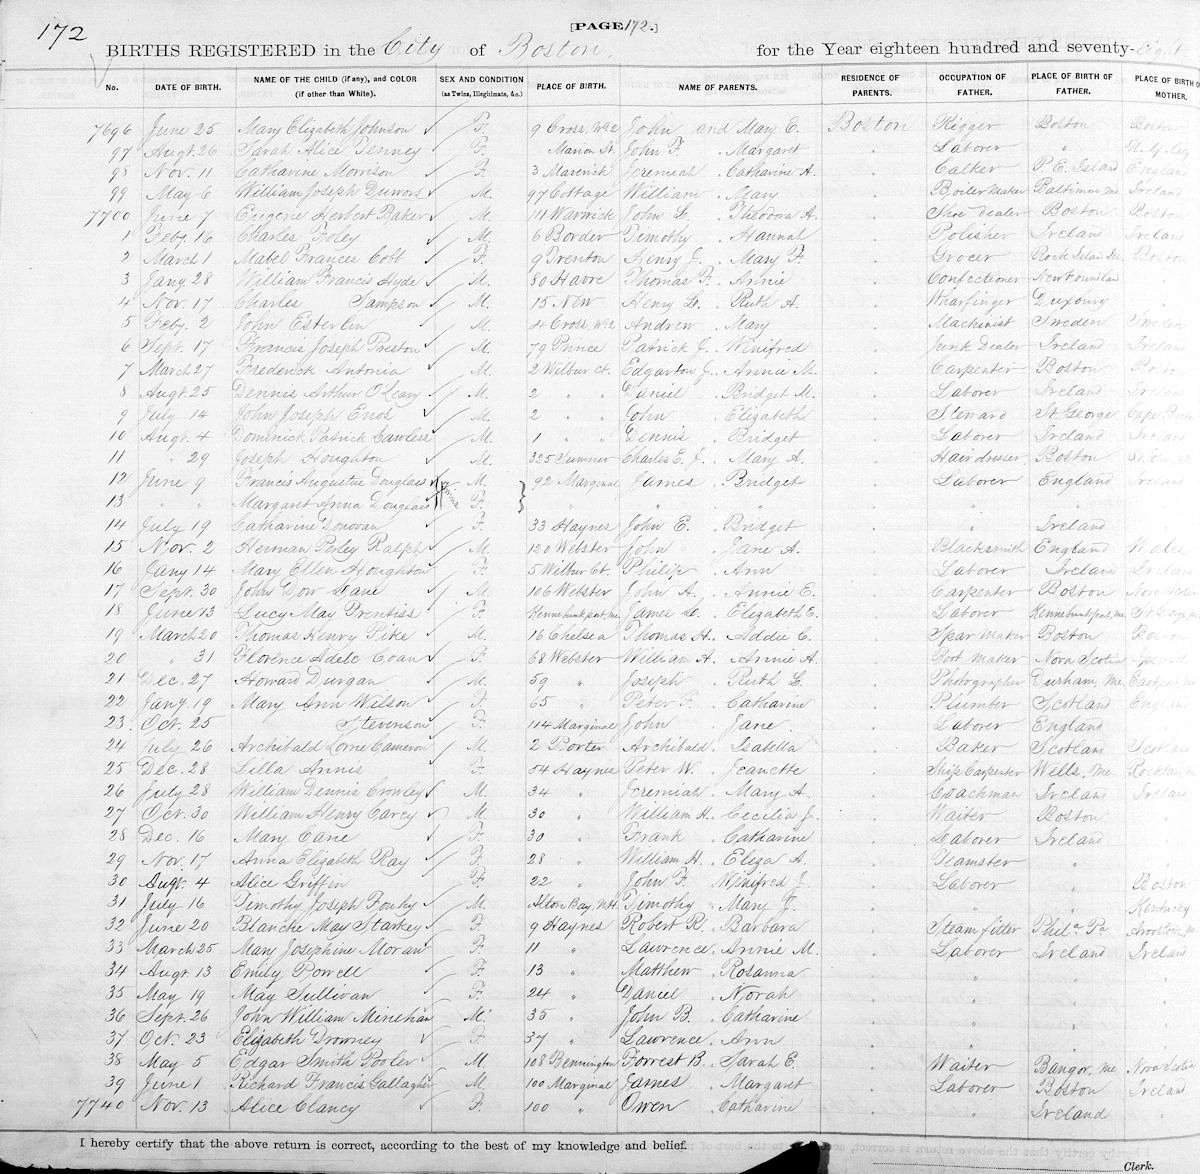 172
[PAGE 172.]
BIRTHS REGISTERED in the City of Boston, for the Year eighteen hundred and seventy-eight
No. DATE OF BIRTH. NAME OF THE CHILD (if any), and COLOR (if other than White). SEX AND CONDITION (as Twins, Illegitimate, &c.) PLACE OF BIRTH. NAME OF PARENTS. RESIDENCE OF PARENTS. OCCUPATION OF FATHER. PLACE OF BIRTH OF FATHER. PLACE OF BIRTH OF MOTHER.
7696 June 25 Mary Elizabeth Johnson F. 9 Cross, Wd 2 John and Mary E. Boston Rigger Boston Boston
97 Augt. 26 Sarah Alice Tenney F. Marion St. John F. . Margaret . Laborer " N. Y. City
98 Nov. 11 Catharine Morrison F. 3 Maverick Jeremiah . Catharine A. . Calker P. E. Island England
99 May 6 William Joseph M. 97 Cottage William . Mary . Boiler Maker Baltimore Md Ireland
7700 June 7 Eugene Herbert Baker M. 111 Warwick John L. . Theodora A. . Shoe Dealer Boston Boston
1 Feby. 16 Charles Foley M. 6 Border Timothy . Hannah . Polisher Ireland Ireland
2 March 1 Mabel Frances Cobb F. 9 Trenton Henry J. . Mary F. . Grocer Rock Island Boston
3 Jany 28 William Francis Hyde M. 80 Havre Thomas F. . Annie . Confectioner Newfounland
4 Nov. 17 Charles Sampson M. 15 New Henry L. . Ruth A. . Wharfinger Duxbury
5 Feby. 2 John Esterlin M. 4 Cross, Wd 2 Andrew . Mary . Machinist Sweden Sweden
6 Sept. 17 Francis Joseph Preston M. 79 Prince Patrick J. . Winifred . Junk Dealer Ireland Ireland
7 March 27 Frederick Antonia M. 2 Wilbur Ct. Edgarton J. . Annie M. . Carpenter Boston Boston
8 Augt. 25 Dennis Arthur O'Leary M. 2 " " Daniel . Bridget M. . Laborer Ireland Ireland
9 July 14 John Joseph Enos M. 2 " " John . Elizabeth . Steward St. George
10 Augt. 4 Dominick Patrick Lawless M. 1 " " Dennis . Bridget . Laborer Ireland Ireland
11 " 29 Joseph Houghton M. 325 Sumner Charles E. J. . Mary A. . Hairdresser Boston
12 June 9 Francis Augustus Douglass M. Twins 92 Marginal James . Bridget . Laborer England Ireland
13 " " Margaret Anna Douglass F. " . " . " "
14 July 19 Catharine Donovan F. 33 Haynes John E. . Bridget . " Ireland
15 Nov. 2 Herman Perley Ralph M. 120 Webster John . Jane A. . Blacksmith England Wales
16 Jany 14 Mary Ellen Houghton F. 5 Wilbur Ct. Philip . Ann . Laborer Ireland Ireland
17 Sept. 30 John Dow Lane M. 106 Webster John A. . Annie E. . Carpenter Boston Nova Scotia
18 June 13 Lucy May Prentiss F. Kennebunkport, Me James L. . Elizabeth E. . Laborer Kennebunkport, Me
19 March 20 Thomas Henry Pike M. 16 Chelsea Thomas H. . Addie E. . Spar Maker Boston Boston
20 " 31 Florence Adele Coan F. 68 Webster William H. . Annie A. . Boot Maker Nova Scotia
21 Dec. 27 Howard Durgan M. 59 " Joseph . Ruth E. . Photographer Durham, Me. Eastport, Me
22 Jany. 19 Mary Ann Wilson F. 65 " Peter F. . Catharine . Plumber Scotland England
23 Oct. 25 Stevenson F. 114 Marginal John . Jane . Laborer England
24 July 26 Archibald Lorne Cameron M. 2 Porter Archibald . Isabella . Baker Scotland Scotland
25 Dec. 28 Lilla Annis F. 54 Haynes Peter W. . Jeanette . Ship Carpenter Wells, Me. Rockland Me
26 July 28 William Dennis Crowley M. 34 " Jeremiah . Mary A. . Coachman Ireland Ireland
27 Oct. 30 William Henry Carey M. 30 " William H. . Cecilia J. . Waiter Boston
28 Dec. 16 Mary Cane F. 30 " Frank . Catharine . Laborer Ireland
29 Nov. 17 Anna Elizabeth Ray F. 28 " William H. . Eliza A. . Teamster "
30 Augt. 4 Alice Griffin F. 22 " John F. . Winifred J. . Laborer " Boston
31 July 16 Timothy Joseph M. Alton Bay, N.H. Timothy . Mary J. . " " Kentucky
32 June 20 Blanche May Starkey F. 9 Haynes Robert R. . Barbara . Steam fitter Phila Pa
33 March 25 Mary Josephine Moran F. 11 " Lawrence . Annie M. . Laborer Ireland Ireland
34 Augt. 13 Emily Powell F. 13 " Matthew . Rosanna . " "
35 May 19 May Sullivan F. 24 " Daniel . Norah . " "
36 Sept. 26 John William Minehan M. 35 " John B. . Catharine . " "
37 Oct. 23 Elizabeth Downey F. 37 " Lawrence . Ann . " "
38 May 5 Edgar Smith Fowler M. 108 Bennington Forrest B. . Sarah E. . Waiter Bangor, Me Nova Scotia
39 June 1 Richard Francis Gallagher M. 100 Marginal James . Margaret . Laborer Boston Ireland
7740 Nov. 13 Alice Clancy F. 100 " Owen . Catharine . " Ireland "
I hereby certify that the above return is correct, according to the best of my knowledge and belief.
Clerk.